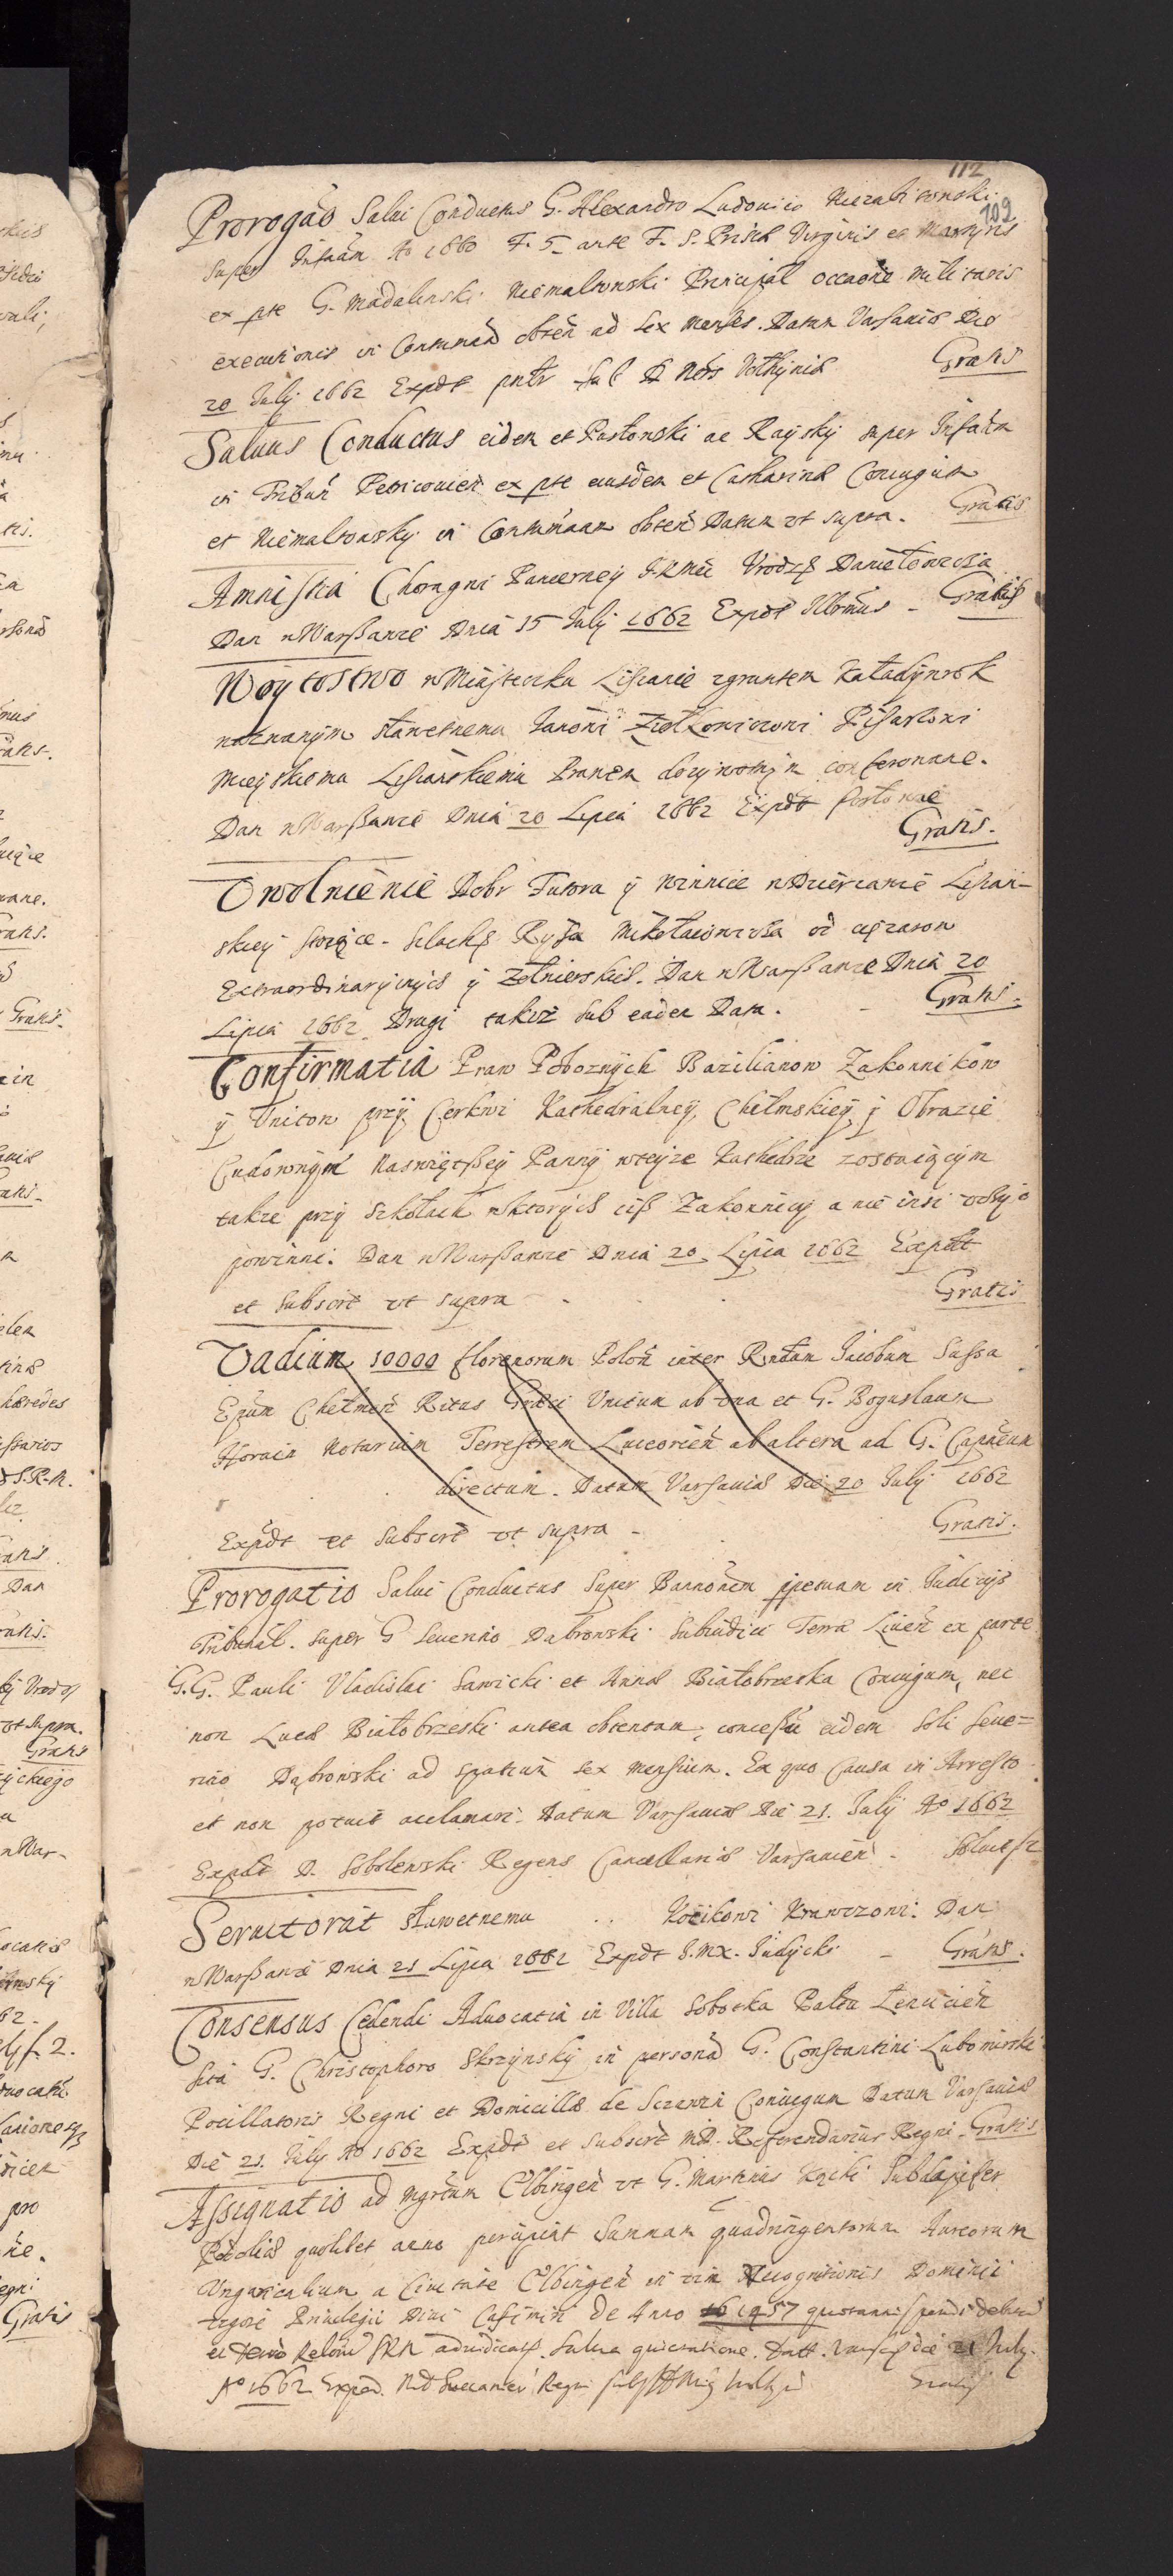 112
109
Prorogaõ Salui Conductus G. Alexandro Ludouico Niezabitowski
super Infaãm Aõ 1660 F. 5 ante F. S. Priscæ Virginis et Martyris
ex pte G. Madalenski Niemalowski Principal occaõne militaris
executionis in Contumaã obteñ ad sex menses. Datum Varsauiæ Die
20 July 1662 Expdt pntr Sub Nots Volhyniæ Gratis
Saluus Conductus eidem et Pasłonski ac Rayský super Infaãm
in Tribuñ Petricouieñ ex pte eiusdem et Catharinæ Coniugum
et Niemalowsky in Contumaam obteñ Datum vt supra. Gratis
Amnistia Choragni Pancerney JKMci Vrodzo Danielowicza
Dan w Warßawie Dnia 15 July 1662 Expdt Gratis
Woytostwo w Miasteczku Liszanie z gruntem Kaładynwok
nazwanym sławetnemu Janowi Ziołkowiczowi Pisarzowi
Mieyskiemu Liszańskiemu Prawem dozywotnym conferowane.
Dan w Warßawie Dnia 20 Lipca 1662 Expdt
Gratis.
Vwolnienie Dobr Futora y Winnice w Dzierzawie Liszan-
skiey stoiące Slachco Ryßa Mikołaiowicza od ciężarow
Extraordinaryinych y Zołnierskich. Dan w Warßawie Dnia 20
Lipca 1662. Drugi takiż sub eadem Data. Gratis.
Confirmatia Praw Pobożnych Bazilianow Zakonnikow
y Vnitow przy Cerkwi Kathedralney Chełmskiey y Obrazie
Cudownym Naswiętßey Panny w teyze Kathedrze zostaiącym
takze przy Szkołach w ktorych ciß Zakonnicy a nie insi
powinni. Dan w Warßawie Dnia 20 Lipca 1662 Expdt
et Subscrt vt supra Gratis
Vadium 10000 florenorum Poloñ inter Rndum Jacobum Sußa
Epum Chełmeñ Ritus Græci Vnitum ab vna et G. Boguslaum
Horain Notarium Terrestrem Luceorieñ ab altera ad G. Capneum
directum. Datum Varsauiæ Die 20 July 1662
Expdt et Subscrt vt supra - Gratis.
Prorogatio Salui Conductus super Bannõnem ppetuam in Judicijs
Tribunal. super G Seuerino Dabrowski Subiudici Terræ Liueñ ex parte
G.G. Pauli Vladislai Sawicki et Annæ Białobrzeska Coniugum, nec
non Lucæ Białobrzeski antea obtentam, concessu eidem soli Seue=
rino Dąbrowski ad spatium sex mensium. Ex quo Causa in Arresto
et non potuit acclamari. Datum Varsauiæ Die 21. July Aõ 1662
Expdt D. Sobolewski Regens Cancellariæ Varsauieñ
Seruitorat sławetnemu .. Kocikowi Krawczowi. Dan
w Warßawie Dnia 21 Lipca 1662 Expdt J.MX. Judycki - Gratis.
Consensus Cedendi Aduocatia in Villa Sobotka Paltu Lencicieñ
sita G. Christophoro Skrzynsky in personã G. Constantini Lubomirski
Pocillatoris Regni et Domicillæ de Sczawin Coniugum Datum Varsauiæ
Die 21. July Aõ 1662 Expdt et Subscrt MD. Referendarius Regni. Gratis
Assignatio ad Mgrtum Elbingeñ vt G. Martinus Kącki Subdapifer
Podoliæ quolibet anno percipiat Summam quadringentorum Aureorum
Vngaricalium a Ciuitate Elbingeñ in vim Recognitionis Dominii
vigore Priuilegii Diui Casimiri de Anno 1457 quotannis pendi
ei adiudicat. Salua quietatione. Datt. die 21 July.
Aõ 1662 Exped. Regni